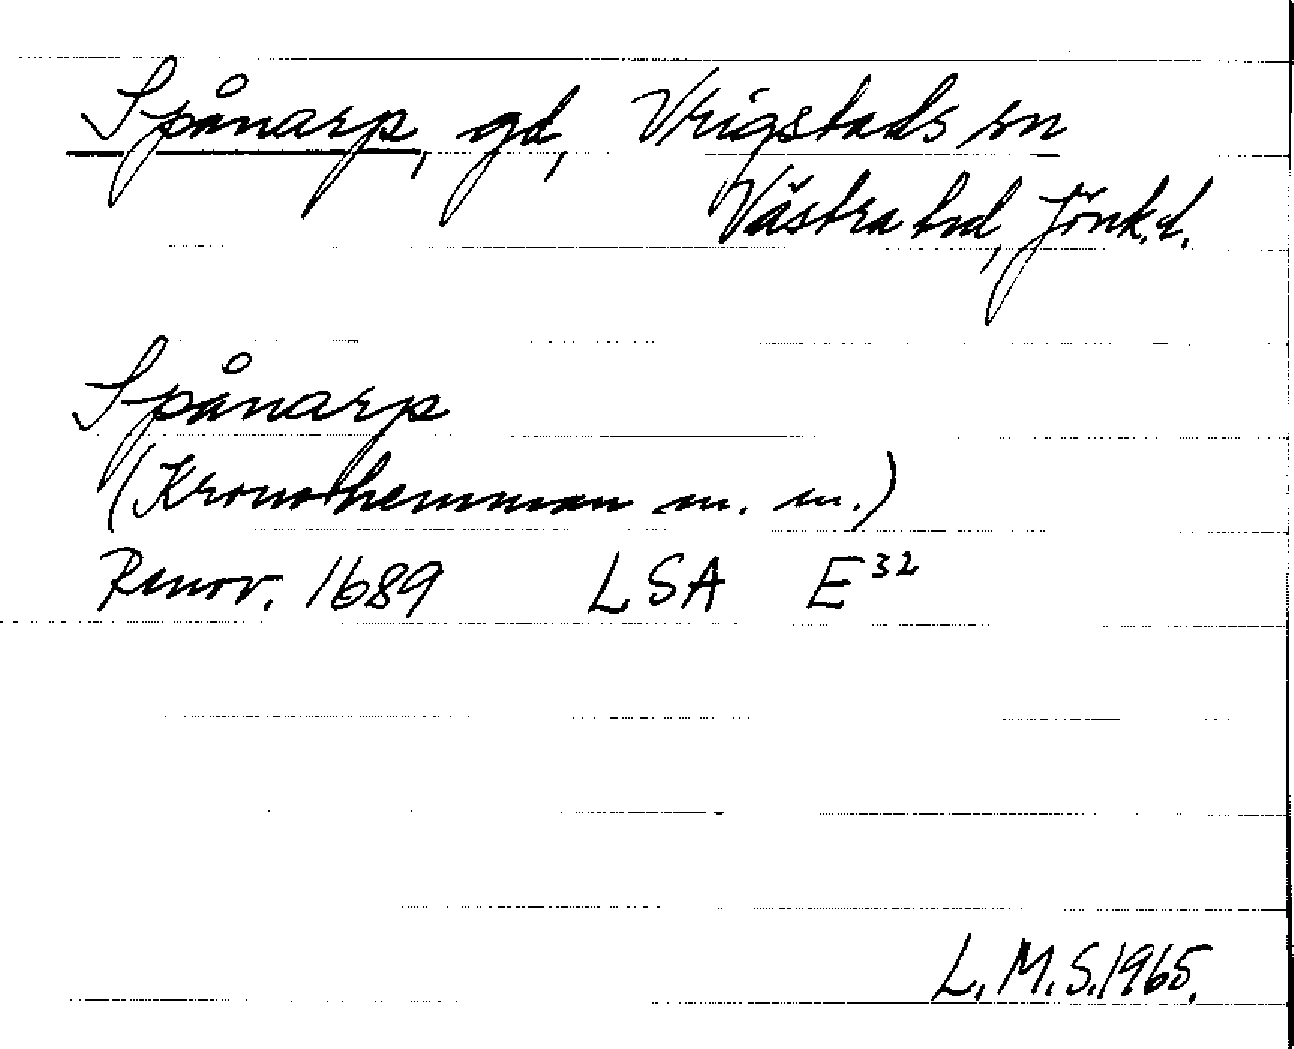 Spånarp, gd, Vrigstads sn
Västra hd, Jönk.l.
Spånarp
(Kronohemman m. m.)
Renov. 1689 LSA E³²
L.M.S. 1965.